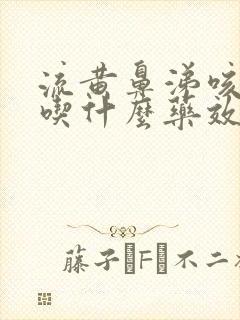 流黄鼻涕咳
喫什麼藥效
藤子・F・不二